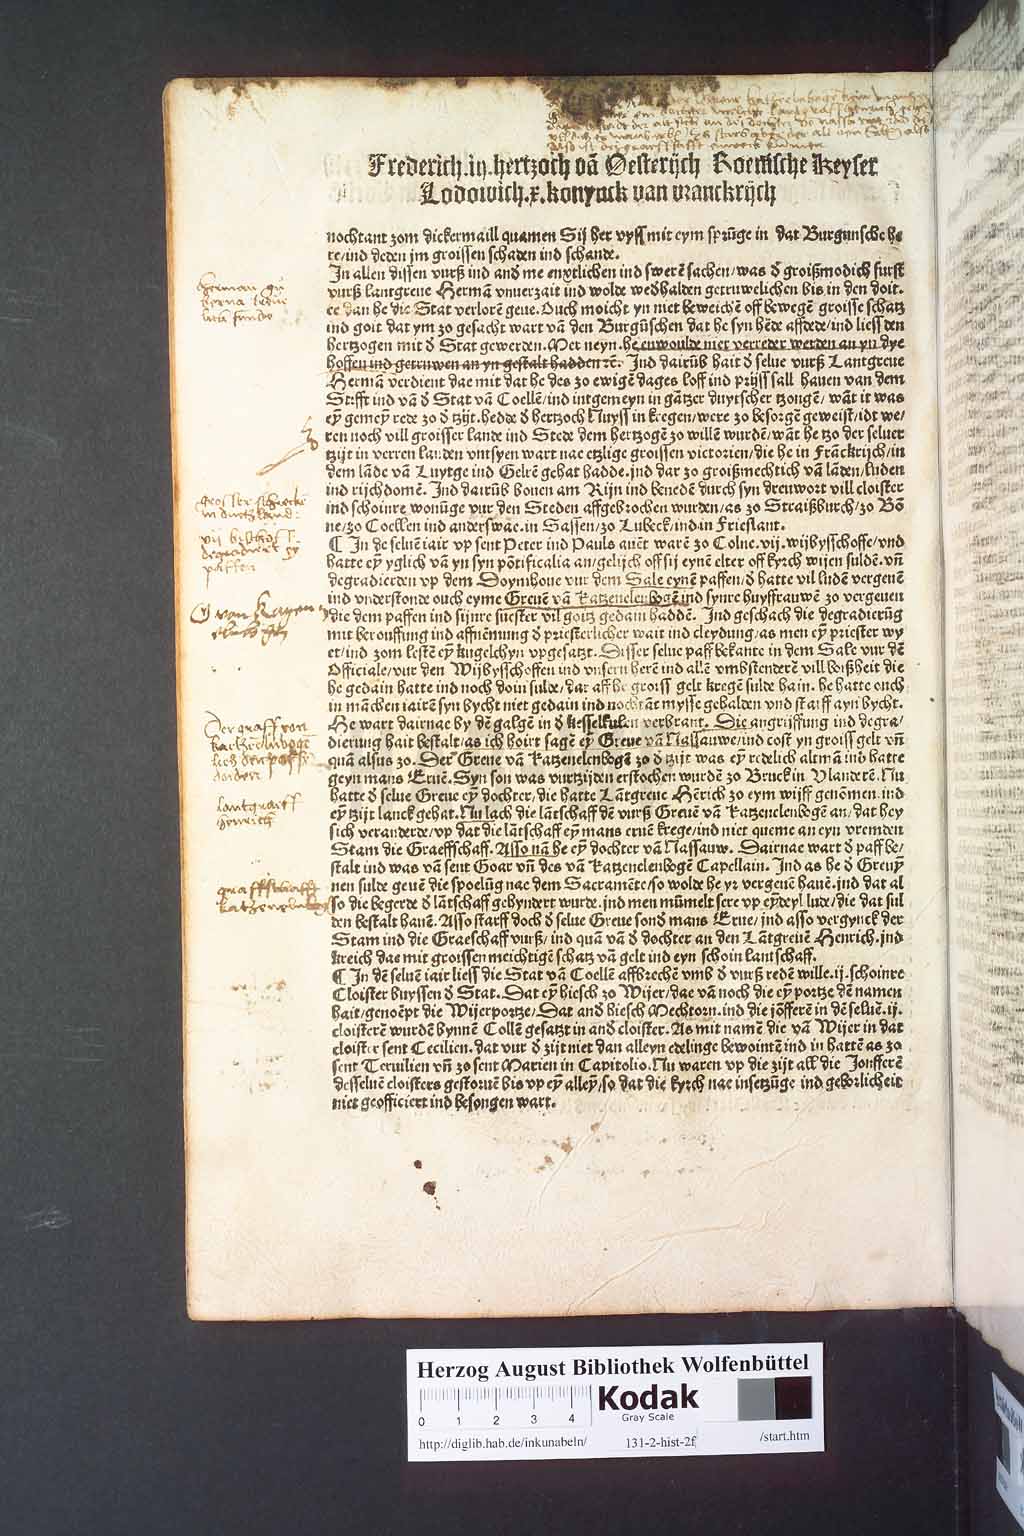 Frederich.iij.hertzoch vā Oesterijch Roemsche Keyser
Lodowich.x.konynck van vranckrijch
nochtant zom dickermaill quamen Sij her vyss mit eym sprūge in dat Burgunsche he
re/ind deden jm groissen schaden ind schande.
In allen dissen vurß ind and me enxtlichen ind swerē sachen/was ð groißmodich furst
vurß lantgreue Hermā vnuerzait ind wolde weðhalden getruwelichen bis in den doit.
ee dan he die Stat verlorē geue. Ouch moicht yn niet beweichē off bewegē groisse schatz
ind goit dat ym zo gesacht wart vā den Burgūschen dat he syn hēde affdede/ind liess den
hertzogen mit ð Stat gewerden. Mer neyn. he enwoulde niet verreder werden an yn dye
hoffen ind getruwen an yn gestalt hadden rc̄. Ind dairūb hait ð selue vurß Lantgreue
Hermā verdient dae mit dat he des zo ewigē dages loff ind prijss sall hauen van dem
Stifft ind vā ð Stat vā Coellē/ind intgemeyn in gātzer duytscher tzongē/wāt it was
eȳ gemeȳ rede zo ð tzijt. hedde ð hertzoch Nuyss in kregen/were zo besorgē geweist/idt we/
ren noch vill groisser lande ind Stede dem hertzogē zo willē wurdē/wāt he tzo der seluer
tzijt in verren landen vntsyen wart nae etzlige groissen victorien/die he in Frāckrijch/in
dem lāde vā Luytge ind Gelrē gehat hadde. jnd dar zo groißmechtich vā lāden/luden
ind rijchdomē. Ind dairūb bouen am Rijn ind benedē durch syn dreuwort vill cloister
ind schoinre wonūge vur den Steden affgebrochen wurden/as zo Straißburch/zo Bō
ne/zo Coellen ind anderswae. in Sassen/zo Lubeck/ind in Frieslant.
¶ In de seluē iair vp sent Peter ind Pauls auēt warē zo Colne. vij. wijbysschoffe/vnd
hatte eȳ yglich vā yn syn pōtificalia an/gelijch off sij eynē elter off kyrch wijen suldē. vn̄
degradierden vp dem Doymhoue vur dem Sale eynē paffen/ð hatte vil ludē vergeuē
ind vnderstonde ouch eyme Greuē vā Katzenelenbogē ind synre huyffrauwē zo vergeuen
die dem paffen ind sijnre suester vil goitz gedain haddē. Ind geschach die degradierūg
mit berouffung ind affnēmung ð priesterlicher wait ind cleydung/as men eȳ priester wy
et/ind zom lestē eȳ kugelchyn vpgesatzt. Disser selue paff bekante in dem Sale vur dē
Officiale/vur den Wijbysschoffen ind vnsern herē ind allē vmbstenderē vill boißheit die
he gedain hatte ind noch doin sulde/dar aff he groiss gelt kregē sulde hain. he hatte ouch
in māchen iairē syn bycht niet gedain ind nochtāt mysse gehalden vnd starff ayn bycht.
He wart dairnae by dē galgē in ð kesselkulen verbrant. Die angrijffung ind degra/
dierung hait bestalt/as ich hoirt sagē eȳ Greue vā Nassauwe/ind cost yn groiss gelt vn̄
quā alsus zo. Der Greue vā Katzenelenbogē zo ð tzijt was eȳ redelich altmā ind hatte
geyn mans Eruē. Syn son was vurtzijden erstochen wurdē zo Bruck in Vlanderē. Nu
hatte ð selue Greue eȳ dochter/die hatte Lātgreue Hērich zo eym wijff genōmen. ind
eȳ tzijt lanck gehat. Nu lach die lātschaff dē vurß Greuē vā Katzenelenbogē an/dat hey
sich veranderde/vp dat die lātschaff eȳ mans eruē krege/ind niet queme an eyn vremden
Stam die Graeffschaff. Asso nā he eȳ dochter vā Nassauw. Dairnae wart ð paff be/
stalt ind was vā sent Goar vn̄ des vā Katzenelenbogē Capellain. Ind as he ð Greuȳ
nen sulde geuē die spoelūg nae dem Sacramēte/so wolde he yr vergeuē hauē. jnd dat al
so die begerde ð lātschaff gehyndert wurde. jnd men mūmelt sere vp eȳdeyl lude/die dat sul
den bestalt hauē. Asso starff doch ð selue Greue sonð mans Erue/jnd asso vergynck der
Stam ind die Graeschaff vurß/ind quā vā ð dochter an den Lātgreuē Henrich. jnd
kreich dae mit groissen meichtigē schatz vā gelt ind eyn schoin lantschaff.
¶ In dē seluē iair liess die Stat vā Coellē affbrechē vmb ð vurß redē wille. ij. schoinre
Cloister buyssen ð Stat. Dat eȳ hiesch zo Wijer/dae vā noch die eȳ portze dē namen
hait/genoēpt die Wijerportze/Dat and hiesch Mechtorn. ind die jōfferē in dē seluē. ij.
cloisterē wurdē bynnē Collē gesatzt in and cloister. As mit namē die vā Wijer in dat
cloister sent Cecilien. dat vur ð zijt niet dan alleyn edelinge bewointē ind in hattē as zo
sent Teruilien vn̄ zo sent Marien in Capitolio. Nu waren vp die zijt all die Jonfferē
desseluē cloisters gestoruē bis vp eȳ alleȳ/so dat die kyrch nae insetzūge ind geborlicheit
niet geofficiert ind besongen wart.
Der graff von
lantgraff
Herzog August Bibliothek Wolfenbüttel
Kodak
Gray Scale
0 1 2 3 4
http://diglib.hab.de/inkunabeln/ 131-2-hist-2f /start.htm